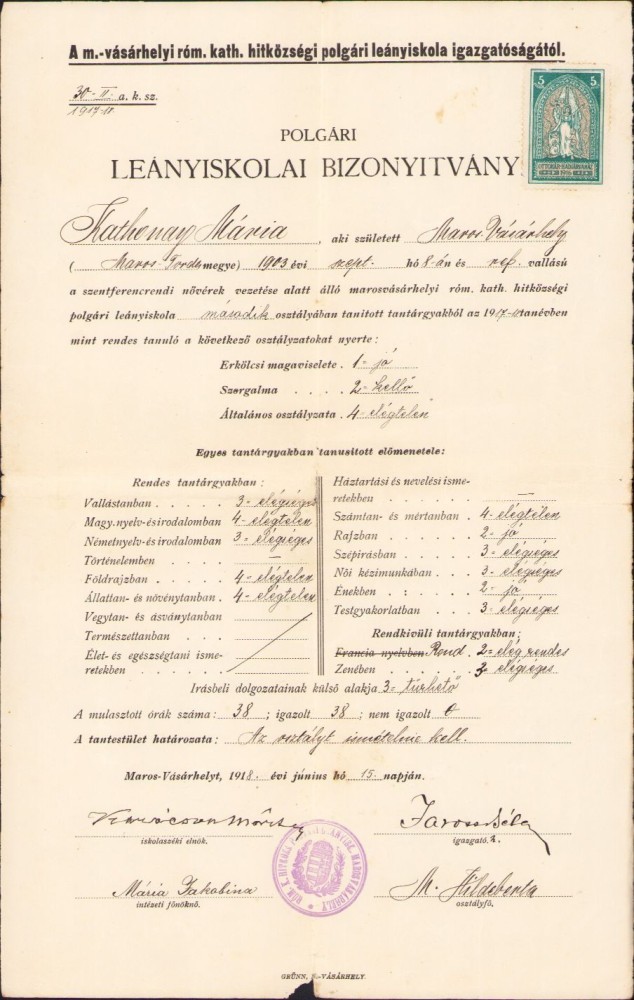 A m.-vásárhelyi róm. kath. hitközségi polgári leányiskola igazgatóságától.
30-II. a. k. sz.
1917-18
5 5
POLGÁRI
LEÁNYISKOLAI BIZONYITVÁNY
Kathonay Mária, aki született Maros Vásárhely
(Maros Torda megye) 1903 évi szept. hó 8-án és ref. vallású
a szentferencrendi nővérek vezetése alatt álló marosvásárhelyi róm. kath. hitközségi
polgári leányiskola második osztályában tanitott tantárgyakból az 1917-18 tanévben
mint rendes tanuló a következő osztályzatokat nyerte:
Erkölcsi magaviselete. 1= jó
Szorgalma . . . . 2= kellő
Általános osztályzata. 4= elégtelen
Egyes tantárgyakban tanusitott előmenetele:
Rendes tantárgyakban:
Vallástanban . . . . . 3= elégséges
Magy. nyelv- és irodalomban 4= elégtelen
Németnyelv- és irodalomban 3= elégséges
Történelemben . . . . —
Földrajzban . . . . . 4= elégtelen
Állattan- és növénytanban. 4= elégtelen
Vegytan- és ásványtanban
Természettanban . . .
Élet- és egészségtani isme-
retekben . . . . . .
Háztartási és nevelési isme-
retekben . . . . . . —
Számtan- és mértanban . 4= elégtelen
Rajzban . . . . . . 2= jó
Szépirásban . . . . . 3= elégséges
Női kézimunkában . . . 3= elégséges
Énekben . . . . . . 2= jó
Testgyakorlatban . . . 3= elégséges
Rendkivüli tantárgyakban:
Francia nyelvben Rend. 2= elég rendes
Zenében . . . . . . 3= elégséges
Irásbeli dolgozatainak külső alakja 3= türhető
A mulasztott órák száma: 38; igazolt 38; nem igazolt 0
A tantestület határozata: Az osztályt ismételnie kell.
Maros-Vásárhelyt, 1918. évi június hó 15. napján.
iskolaszéki elnök.
Jaross Béla
igazgató. h.
Mária Jakobina
intézeti főnöknő.
M. Hildeberta
osztályfő.
GRÜNN, M.-VÁSÁRHELY.